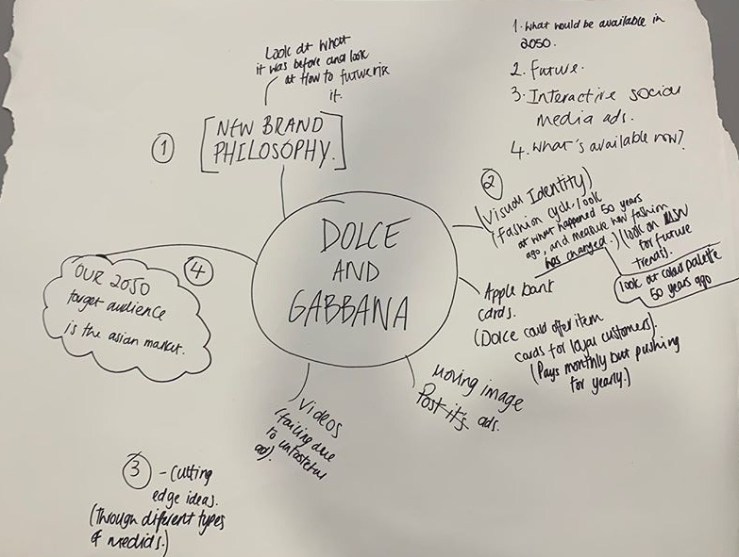 Look at what
it was before and look
at How to futurerise
it.
① [NEW BRAND
PHILOSOPHY.]
1. what would be available in
2050.
2. Future.
3. Interactive social
media ads.
4. What's available now?
DOLCE
AND
GABBANA
②
(Visual Identity)
(Fashion cycle, look
at what happened 50 years
ago, and measure how fashion
has changed.) (look on
for future
trends).
look at colour palette
50 years ago
Apple bank
cards.
(Dolce could offer item
cards for loyal customers).
(Pays monthly but pushing
for yearly.)
Moving image
Post it's ads.
Videos
(failing due
to
ad).
④
OUR 2050
target audience
is the asian market.
③ - Cutting
edge ideas.
(Through different types
of medids.)